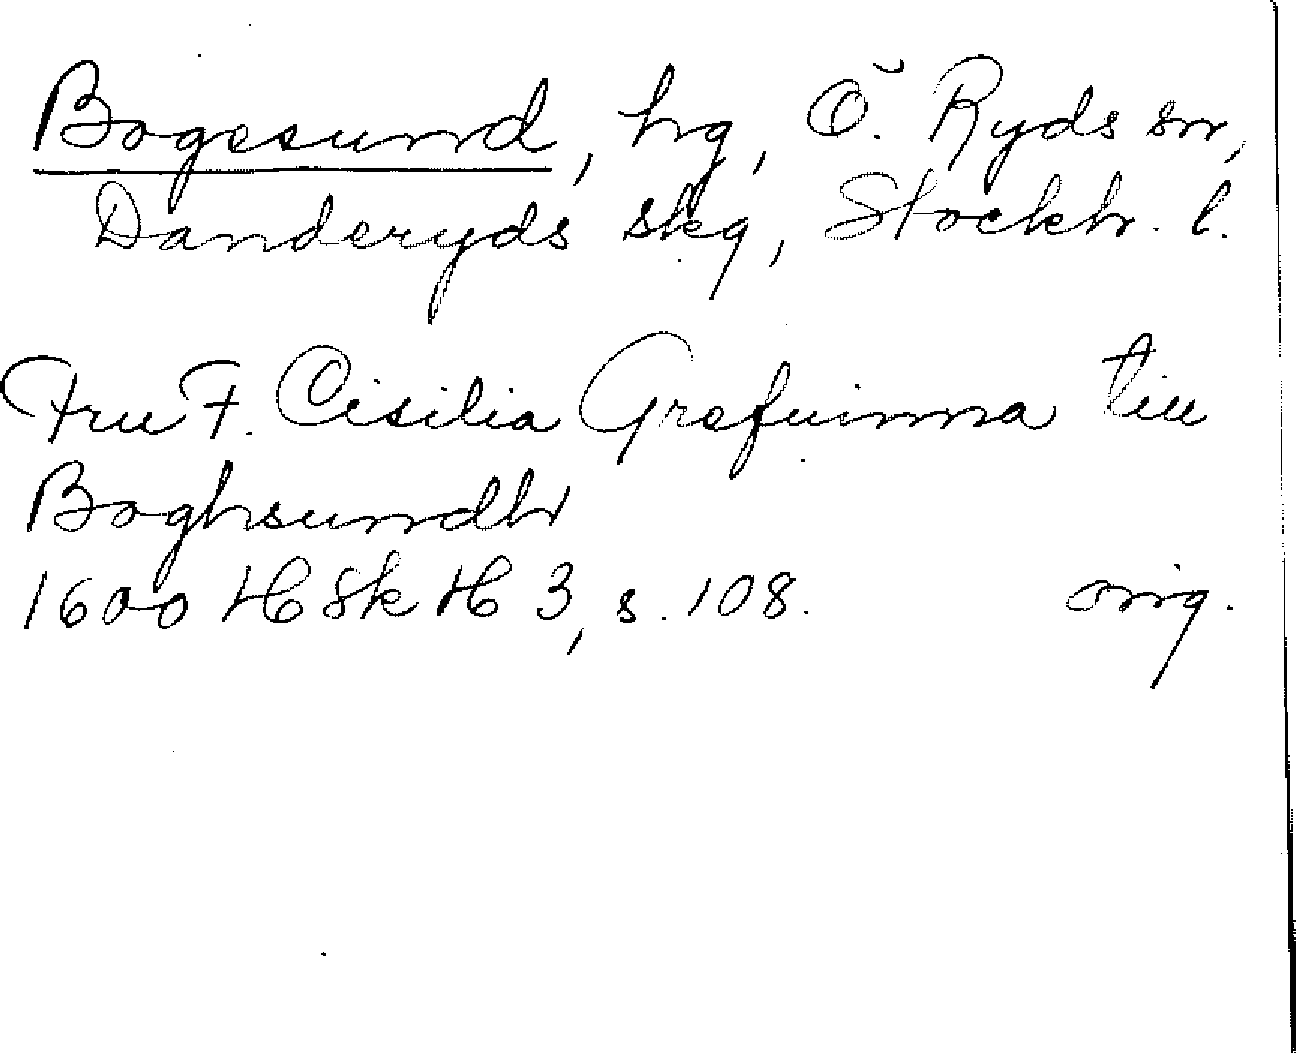 Bogesund, hg, Ö. Ryds sn,
Danderyds skg, Stockh. l.
Fru F. Cisilia Grefuinna till
Boghsundh
1600 H Sk H 3, s. 108. orig.